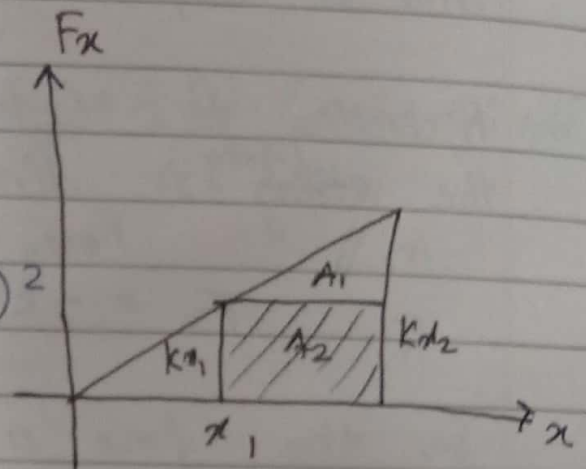 Fx
) 2
A1
Kx1
A2
Kx2
x1
x